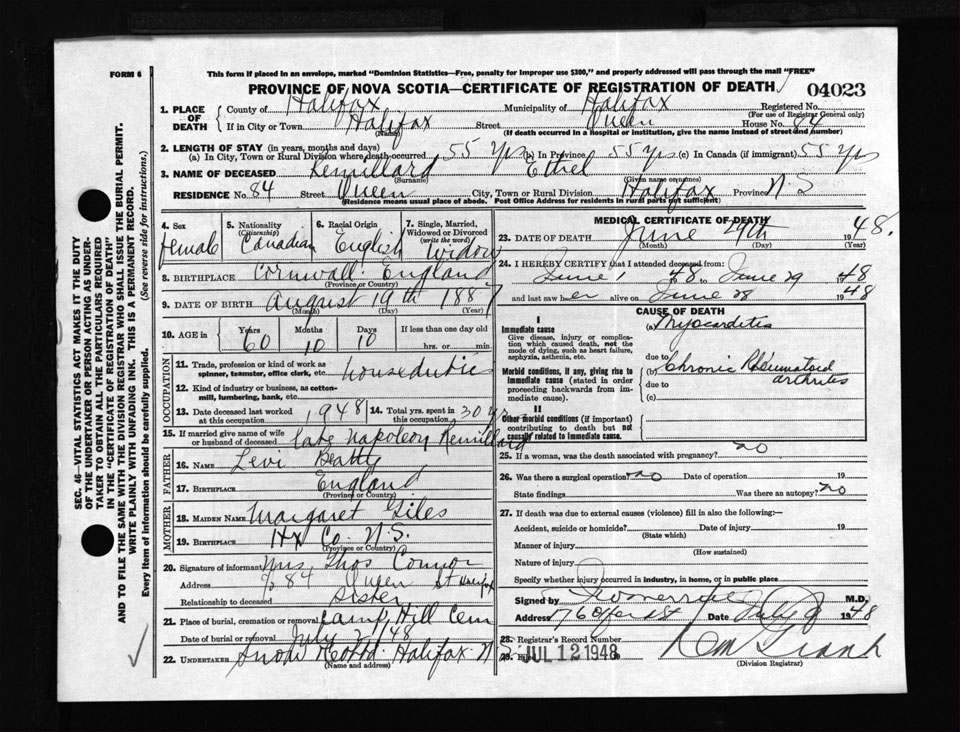 FORM 6
This form if placed in an envelope, marked "Dominion Statistics—Free, penalty for improper use $300," and properly addressed will pass through the mail "FREE"
PROVINCE OF NOVA SCOTIA—CERTIFICATE OF REGISTRATION OF DEATH
04023
1. PLACE OF DEATH County of Halifax Municipality of Halifax Registered No.
(For use of Registrar General only)
If in City or Town Halifax Street Queen House No. 84
(Name) (If death occurred in a hospital or institution, give the name instead of street and number)
2. LENGTH OF STAY (in years, months and days)
(a) In City, Town or Rural Division where death occurred 55 yrs (b) In Province 55 yrs (c) In Canada (if immigrant) 55 yrs
3. NAME OF DECEASED Remillard Ethel
(Surname) (Given name or names)
RESIDENCE No. 84 Street Queen City, Town or Rural Division Halifax Province N.S
(Residence means usual place of abode. Post Office Address for residents in rural parts not sufficient)
4. Sex 5. Nationality (Citizenship) 6. Racial Origin 7. Single, Married, Widowed or Divorced (write the word)
female Canadian English Widow
8. BIRTHPLACE Cornwall England
(Province or Country)
9. DATE OF BIRTH August 19th 1887
(Month) (Day) (Year)
10. AGE in Years Months Days If less than one day old
60 10 10 hrs. or min.
OCCUPATION
11. Trade, profession or kind of work as spinner, teamster, office clerk, etc. house duties
12. Kind of industry or business, as cotton-mill, lumbering, bank, etc.
13. Date deceased last worked at this occupation 1948 14. Total yrs. spent in this occupation 30 yrs
15. If married give name of wife or husband of deceased late Napoleon Remillard
FATHER
16. NAME Levi Beatty
17. BIRTHPLACE England
(Province or Country)
MOTHER
18. MAIDEN NAME Margaret Giles
19. BIRTHPLACE Hx Co. N.S.
(Province or Country)
20. Signature of informant Mrs Thos Connor
Address 84 Queen St Halifax
Relationship to deceased Sister
21. Place of burial, cremation or removal Camp Hill Cem
Date of burial or removal July 2/48
22. UNDERTAKER Snow Halifax N
(Name and address)
MEDICAL CERTIFICATE OF DEATH
23. DATE OF DEATH June 29th 1948.
(Month) (Day) (Year)
24. I HEREBY CERTIFY that I attended deceased from:
June 1 48 to June 29 1948
and last saw her alive on June 28 1948
CAUSE OF DEATH
I
Immediate cause (a) Myocarditis
Give disease, injury or complication which caused death, not the mode of dying, such as heart failure, asphyxia, asthenia, etc.
due to
Morbid conditions, if any, giving rise to immediate cause (stated in order proceeding backwards from immediate cause). (b) Chronic Rheumatoid arthritis
due to
(c)
II
Other morbid conditions (if important) contributing to death but not causally related to immediate cause.
25. If a woman, was the death associated with pregnancy? no
26. Was there a surgical operation? no Date of operation 19
State findings Was there an autopsy? no
27. If death was due to external causes (violence) fill in also the following:—
Accident, suicide or homicide? Date of injury 19
(State which)
Manner of injury
(How sustained)
Nature of injury
Specify whether injury occurred in industry, in home, or in public place
Signed by M.D.
Address Date July 1948
28. Registrar's Record Number
29. JUL 12 1948
(Division Registrar)
SEC. 46—VITAL STATISTICS ACT MAKES IT THE DUTY
OF THE UNDERTAKER OR PERSON ACTING AS UNDER-
TAKER TO OBTAIN ALL THE PARTICULARS REQUIRED
IN THE "CERTIFICATE OF REGISTRATION OF DEATH"
AND TO FILE THE SAME WITH THE DIVISION REGISTRAR WHO SHALL ISSUE THE BURIAL PERMIT.
WRITE PLAINLY WITH UNFADING INK. THIS IS A PERMANENT RECORD.
Every item of information should be carefully supplied. (See reverse side for instructions.)